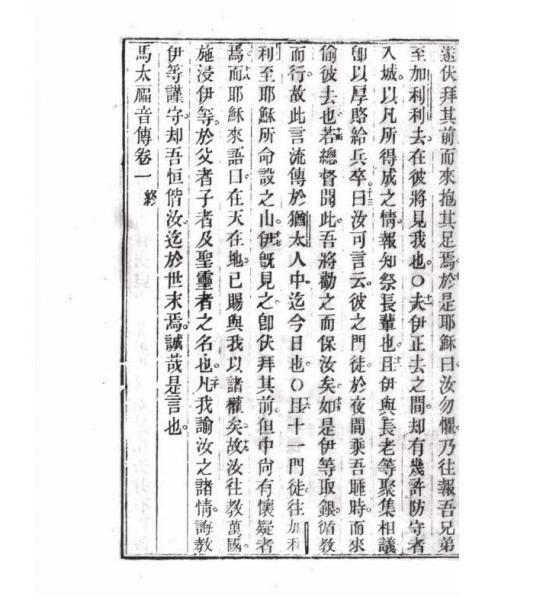 遂伏拜其前而來抱其足焉於是耶穌曰汝勿懼乃往報吾兄弟
至加利利去在彼將見我也○夫伊正去之間却有幾許防守者
入城以凡所得成之情報知祭長輩也且伊與長老等聚集相議
卽以厚賂給兵卒曰汝可言云彼之門徒於夜間乘吾睡時而來
偷彼去也若總督聞此吾將勸之而保汝矣如是伊等取銀循教
而行故此言流傳於猶太人中迄今日也○且十一門徒往加利
利至耶穌所命設之山伊旣見之卽伏拜其前但中尙有懷疑者
焉而耶穌來語曰在天在地已賜與我以諸權矣故汝往教萬國
施浸伊等於父者子者及聖靈者之名也凡我諭汝之諸情誨教
伊等謹守却吾恒偕汝迄於世末焉誠哉是言也
馬太福音傳卷一 終